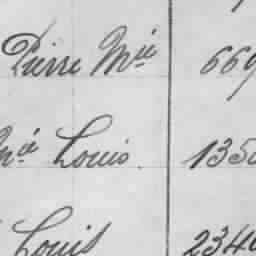 Pierre Mie 669
né Louis 135
Louis 234